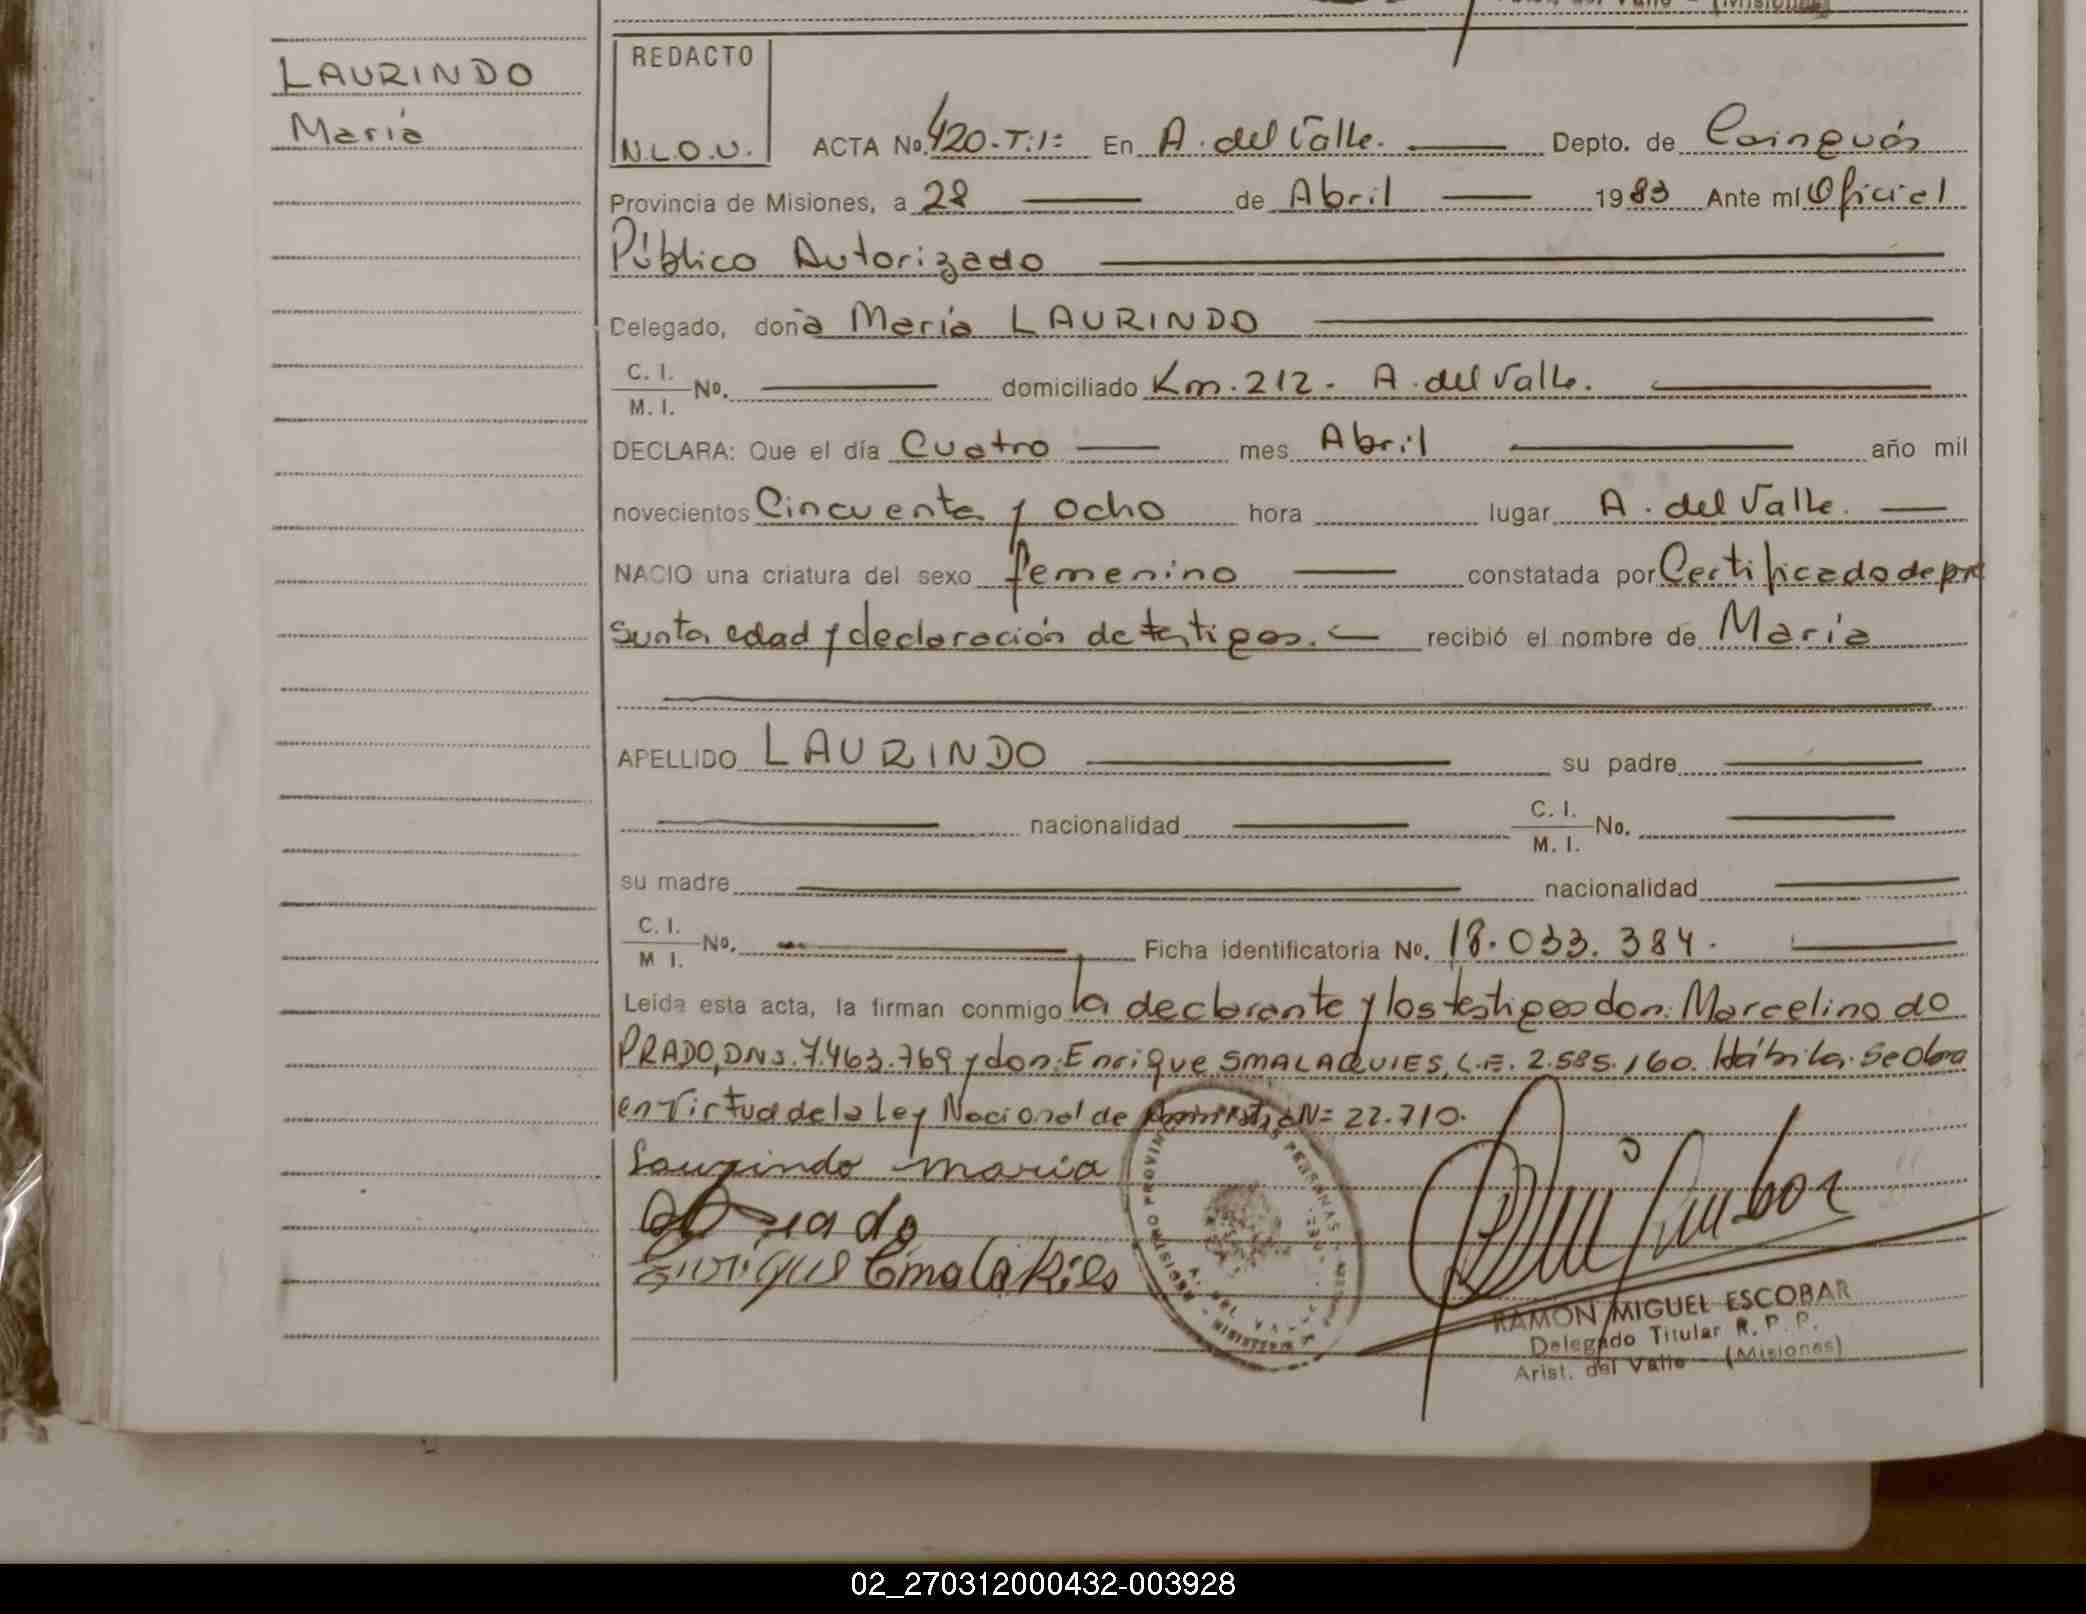 LAURINDO
María
REDACTO
N.L.O.V.
ACTA No. 420-T:1= En A. del Valle. Depto. de Cainguás
Provincia de Misiones, a 28 de Abril 1983 Ante mí Oficial
Público Autorizado
Delegado, doña María LAURINDO
C. I.
M. I. No. domiciliado Km. 212. A. del Valle.
DECLARA: Que el día Cuatro mes Abril año mil
novecientos Cincuenta y ocho hora lugar A. del Valle.
NACIO una criatura del sexo femenino constatada por Certificado de pre
sunta edad y declaración de testigos. recibió el nombre de María
APELLIDO LAURINDO su padre
nacionalidad C. I.
M. I. No.
su madre nacionalidad
C. I.
M I. No. Ficha identificatoria No. 18.033.384.
Leída esta acta, la firman conmigo la declarante y los testigos don: Marcelino do
PRADO, DNI. 7.463.769 y don: Enrique SMALAQUIES, L.E. 2.585.160. Hábiles. Se Obra
en virtud de la Ley Nacional de Amnistía N= 22.710.
Laurindo maria
Enrique Smalakies
RAMON MIGUEL ESCOBAR
Delegado Titular R. P. P.
Arist. del Valle - (Misiones)
02_270312000432-003928